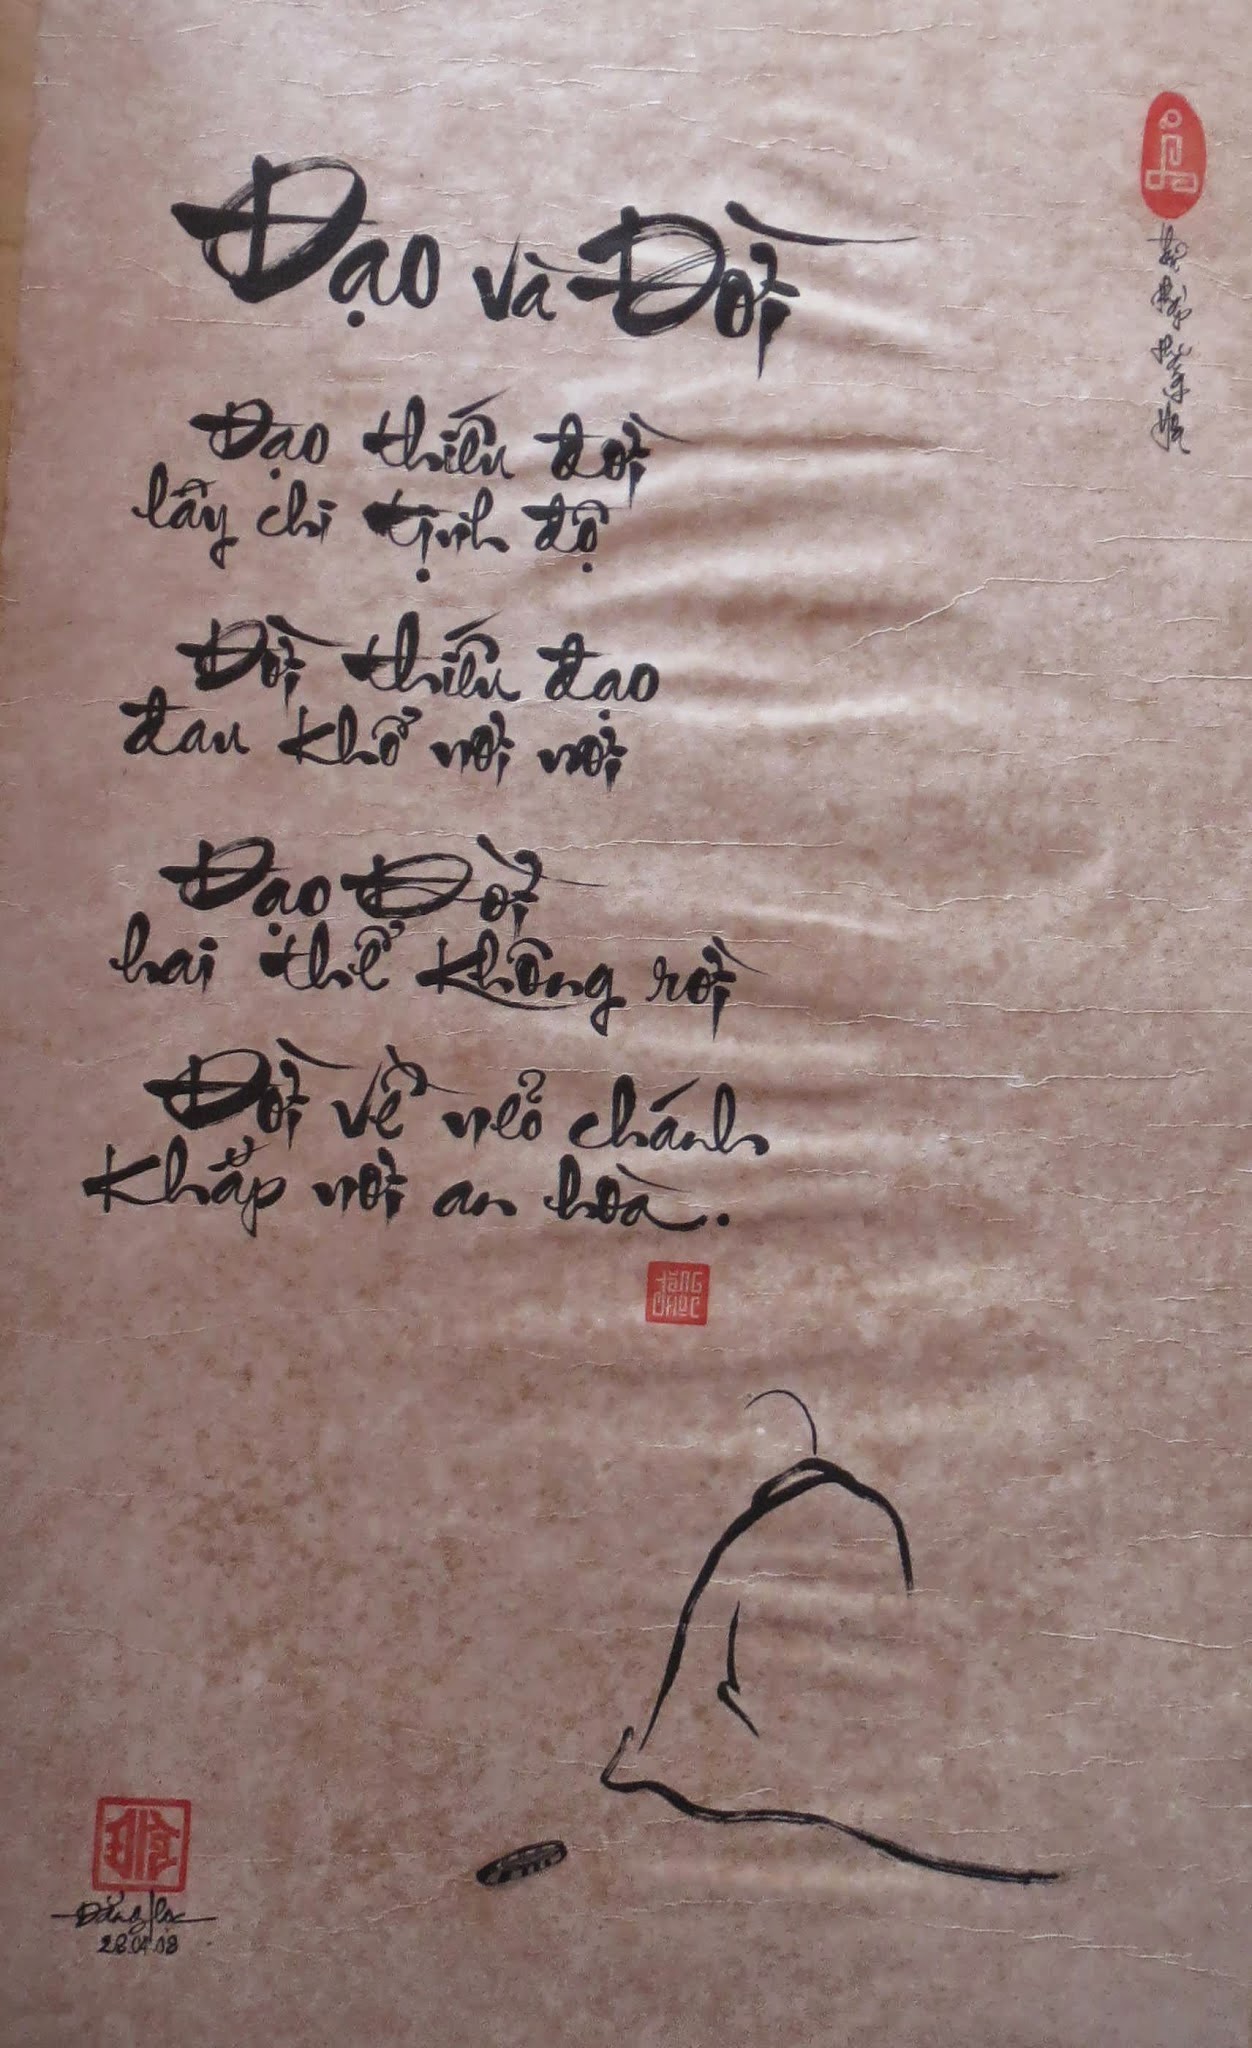 Đạo và Đời
Đạo thiếu đời
lấy chi tịnh độ
Đời thiếu đạo
đau khổ vơi vơi
Đạo Đời
hai thể không rời
Đời về nẻo chánh
Khắp nơi an hòa.
Đăng Học